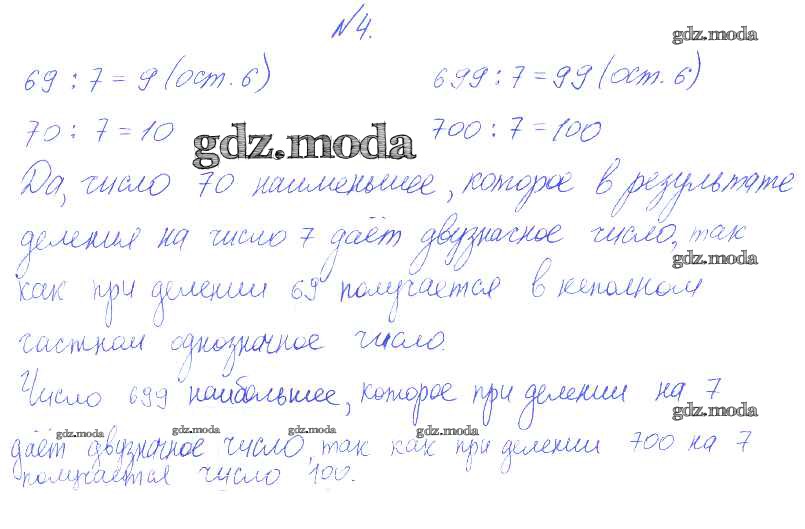 №4.
gdz.moda
69 : 7 = 9 (ост. 6) 699 : 7 = 99 (ост. 6)
70 : 7 = 10 700 : 7 = 100
gdz.moda
Да, число 70 наименьшее, которое в результате
деления на число 7 даёт двузначное число, так
gdz.moda
как при делении 69 получается в неполном
частном однозначное число.
Число 699 наибольшее, которое при делении на 7
gdz.moda
gdz.moda gdz.moda gdz.moda gdz.moda
даёт двузначное число, так как при делении 700 на 7
получается число 100.